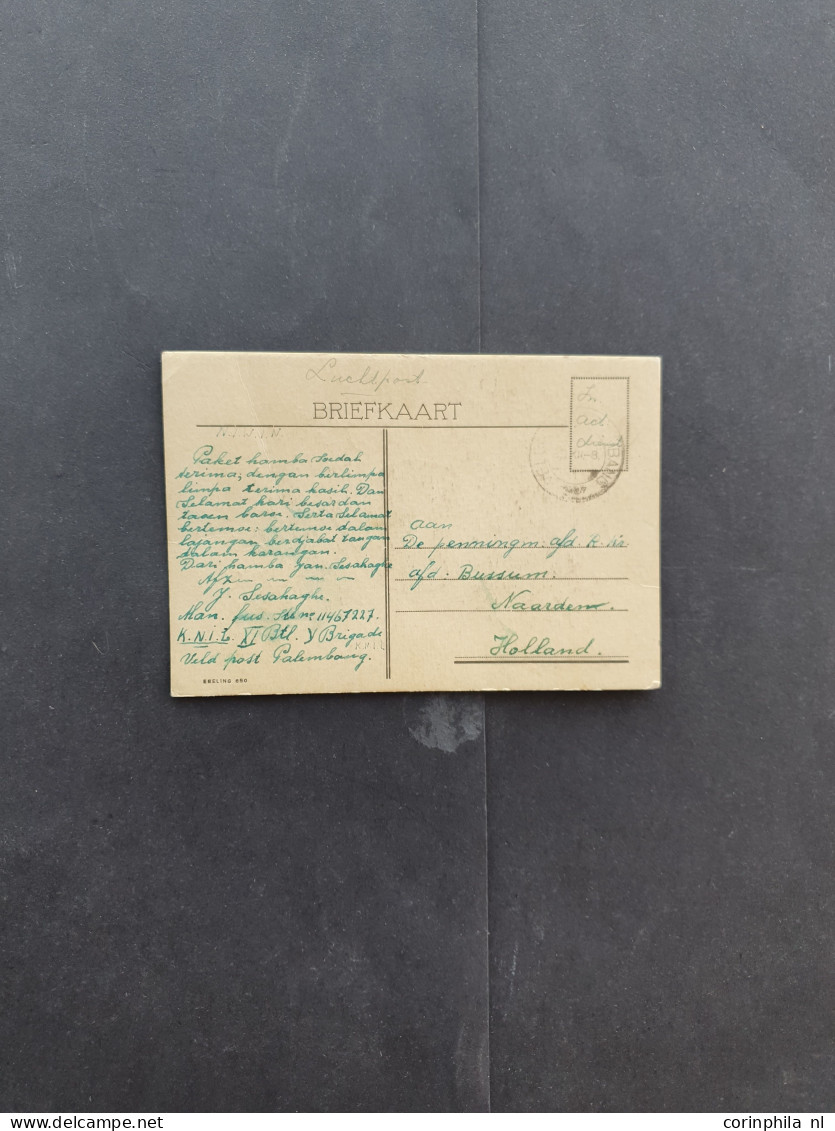 Luchtpost
BRIEFKAART
N.I.W.I.N.
In
Act.
dienst
Paket hamba soedah
terima, dengan berlimpa
limpa terima kasih. Dan
Selamat hari besar dan
taoen baroe. Serta Selamat
bertemoe: bertemoe dalam
lajangan berdjabat tangan
dalam karangan.
Dari hamba Jan. Sesahaghe
Afz
J. Sesahaghe.
Man. fus. 11467227.
K.N.I.L. XI Btl. V Brigade
Veld post Palembang.
EBELING 650
aan
De penningm: afd. K
afd: Bussum:
Naarden.
Holland.
corinphila nl